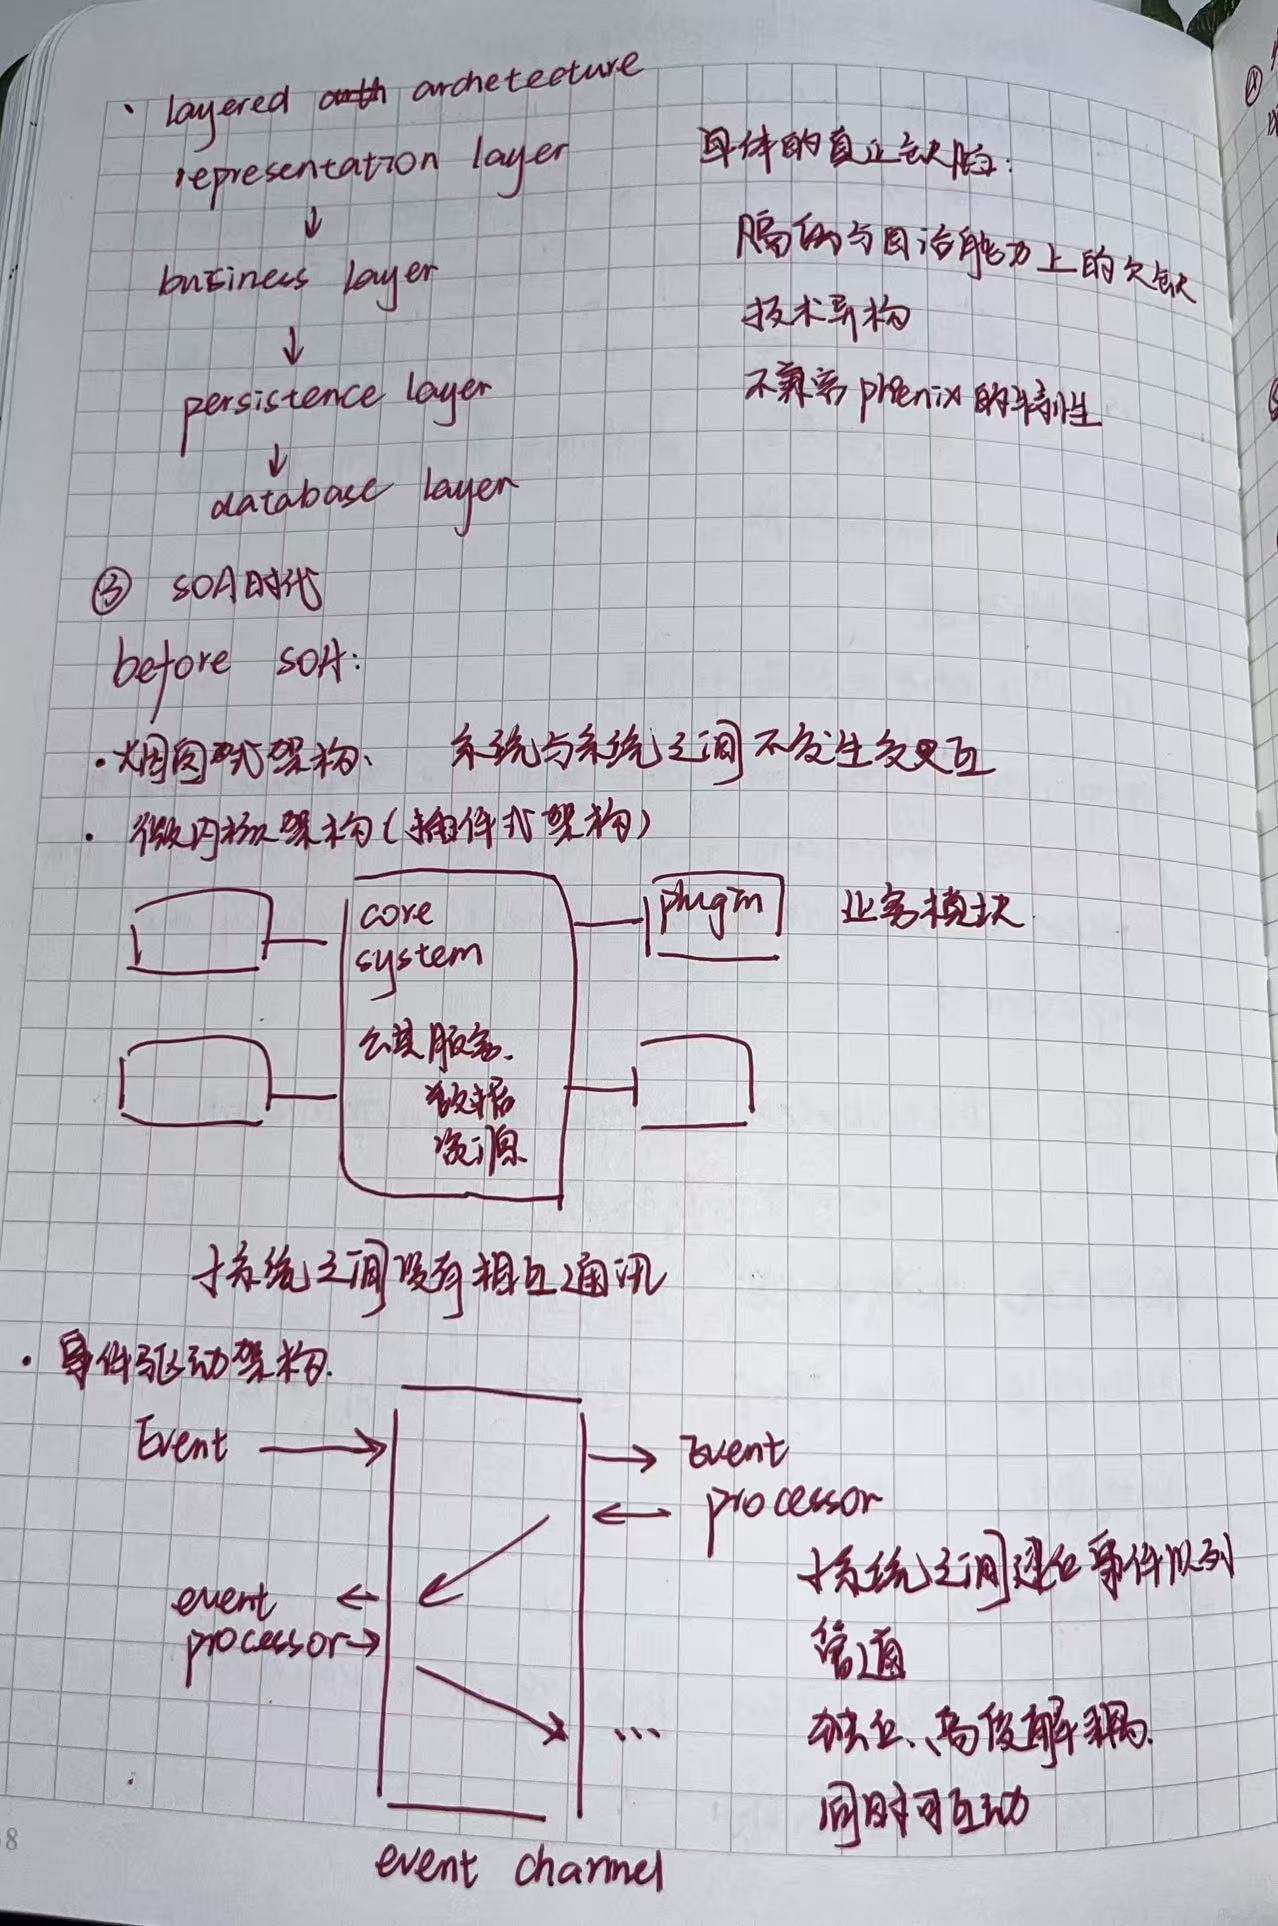 · layered architecture
representation layer
↓
business layer
↓
persistence layer
↓
database layer
单体的真正缺陷:
隔离与自治能力上的欠缺
技术异构
不兼容phenix的特性
③ SOA时代
before SOA:
· 烟囱式架构、 系统与系统之间不发生交互
· 微内核架构(插件式架构)
core
system
公共服务、
数据
资源
plugin 业务模块
子系统之间没有相互通讯
· 事件驱动架构.
Event → → Event
← processor
event ←
processor →
...
event channel
子系统之间建立事件队列
管道
独立、高度解耦.
同时可互动
8